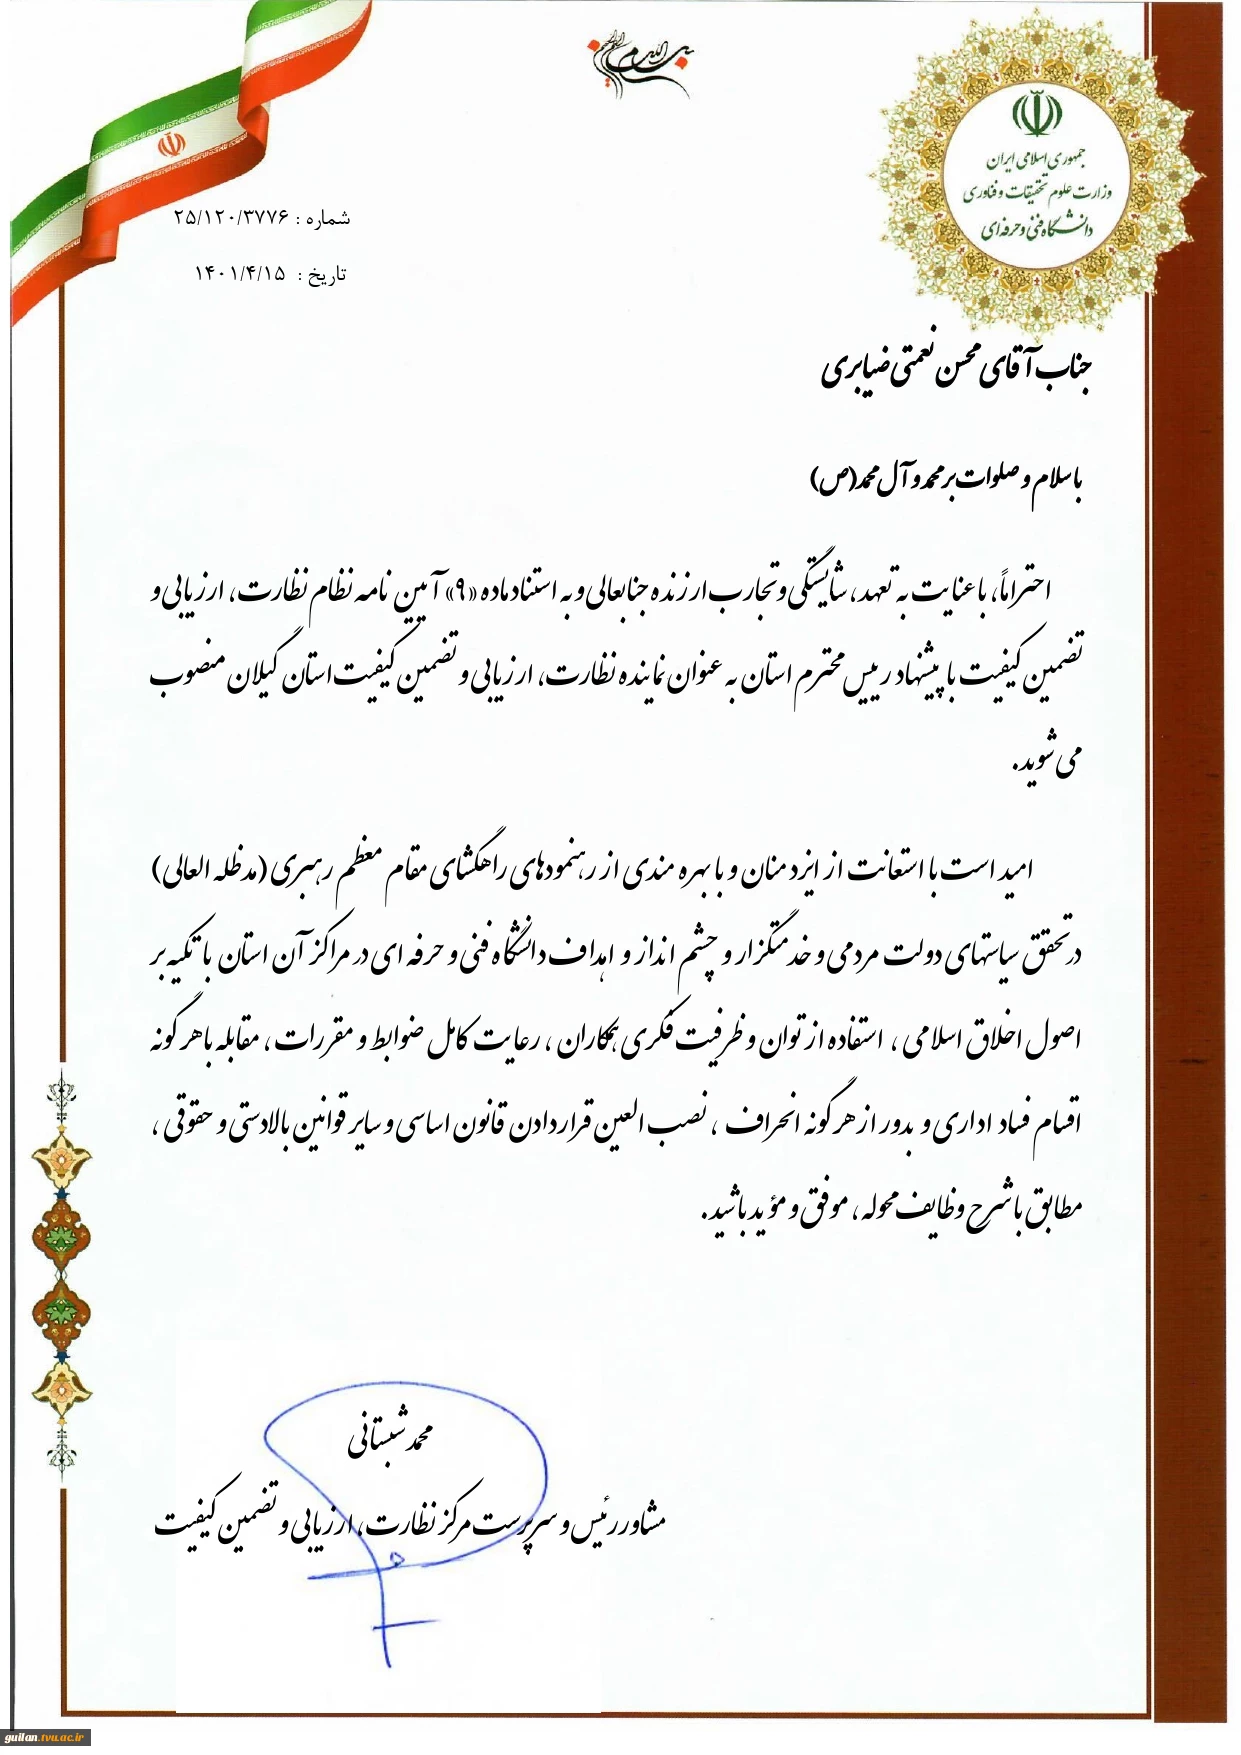 بسم الله الرحمن الرحیم
جمهوری اسلامی ایران
وزارت علوم تحقیقات و فناوری
دانشگاه فنی و حرفه‌ای
شماره : ۲۵/۱۲۰/۳۷۷۶
تاریخ : ۱۴۰۱/۴/۱۵
جناب آقای محسن نعمتی ضیابری
با سلام و صلوات بر محمد و آل محمد (ص)
احتراماً، با عنایت به تعهد، شایستگی و تجارب ارزنده جنابعالی و به استناد ماده «۹» آیین نامه نظام نظارت، ارزیابی و
تضمین کیفیت با پیشنهاد رییس محترم استان به عنوان نماینده نظارت، ارزیابی و تضمین کیفیت استان گیلان منصوب
می شوید.
امید است با استعانت از ایزد منان و با بهره مندی از رهنمودهای راهگشای مقام معظم رهبری (مدظله العالی)
در تحقق سیاستهای دولت مردمی و خدمتگزار و چشم انداز و اهداف دانشگاه فنی و حرفه ای در مراکز آن استان با تکیه بر
اصول اخلاق اسلامی ، استفاده از توان و ظرفیت فکری همکاران ، رعایت کامل ضوابط و مقررات ، مقابله با هر گونه
اقسام فساد اداری و بدور از هر گونه انحراف ، نصب العین قراردادن قانون اساسی و سایر قوانین بالادستی و حقوقی ،
مطابق با شرح وظایف محوله ، موفق و مؤید باشید.
محمد شبستانی
مشاور رئیس و سرپرست مرکز نظارت، ارزیابی و تضمین کیفیت
guilan.tvu.ac.ir